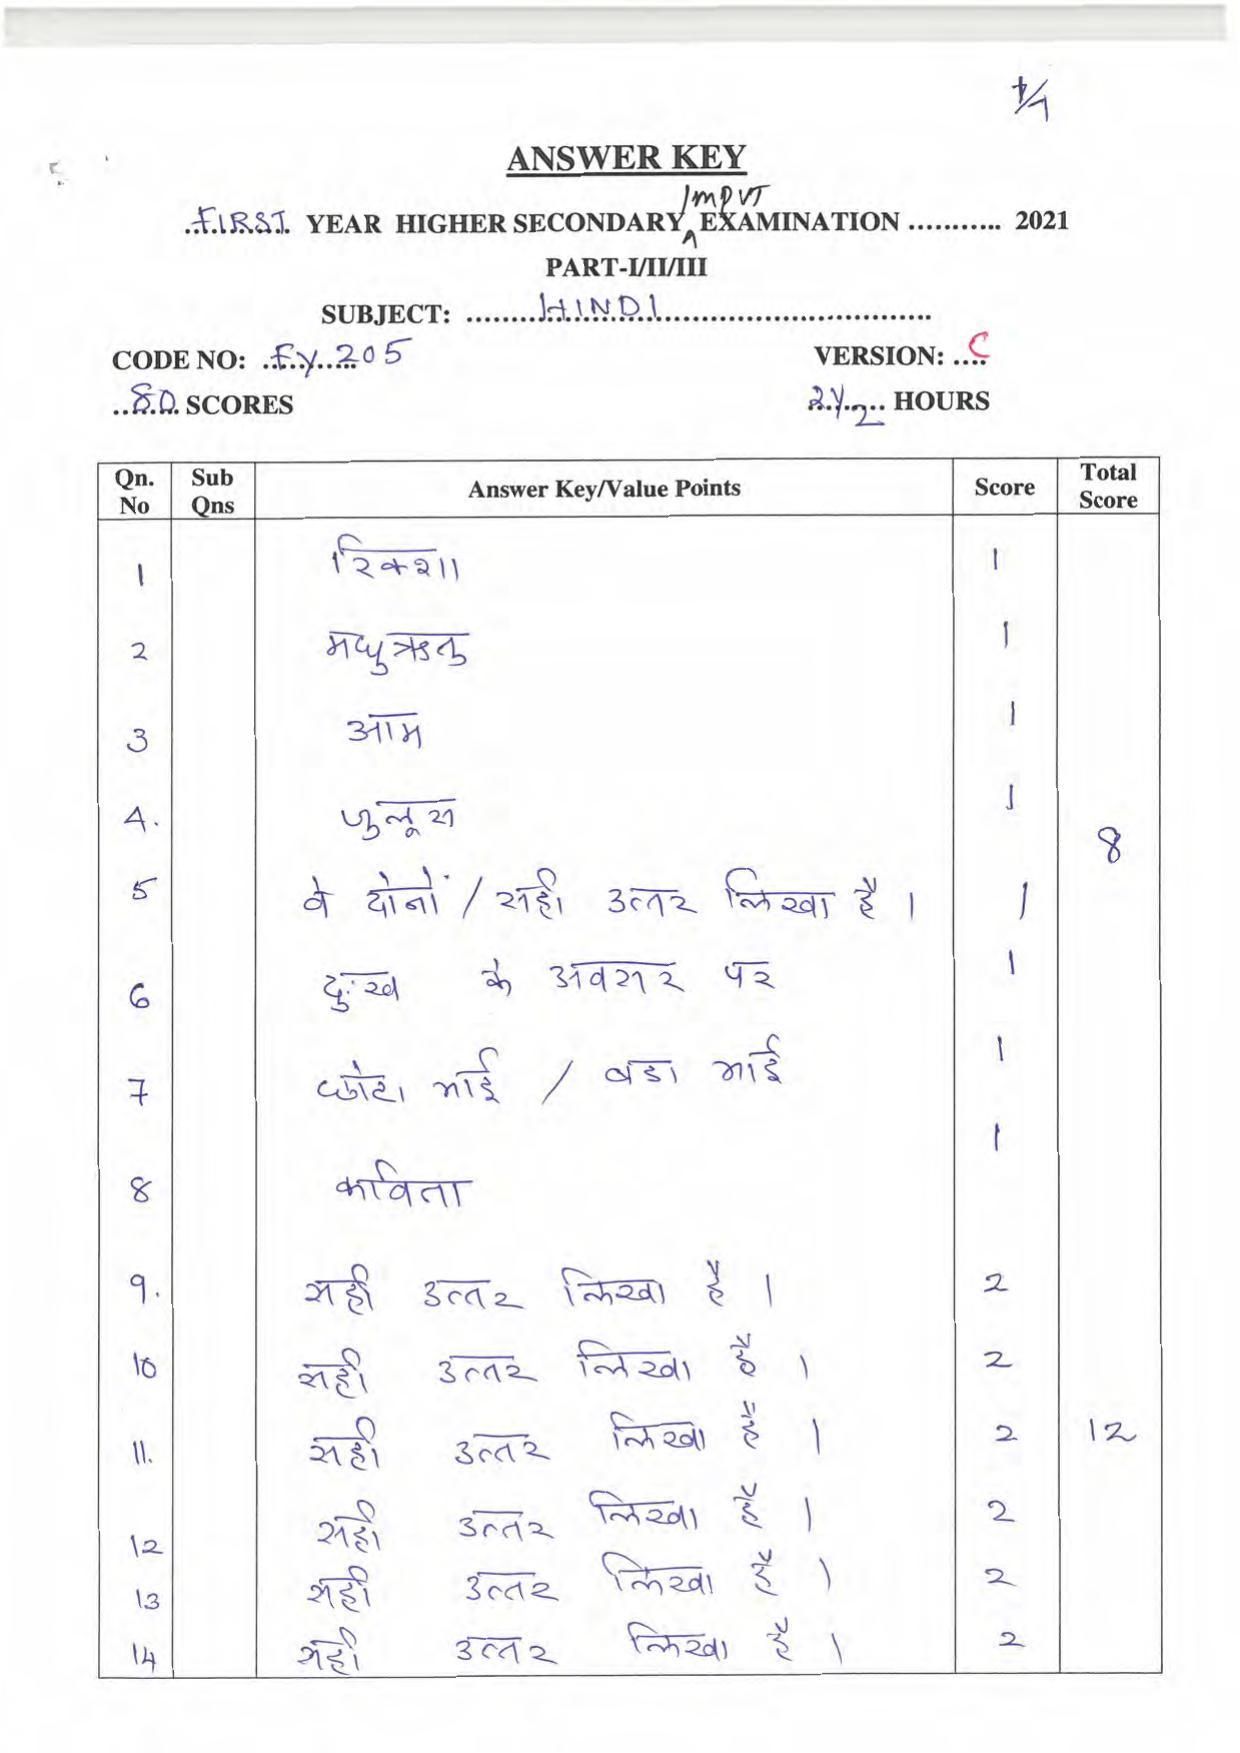 ANSWER KEY
FIRST YEAR HIGHER SECONDARY IMPVT EXAMINATION ........... 2021
PART-I/II/III
SUBJECT: HINDI
CODE NO: FY 205 VERSION: C
80 SCORES 2 1/2 HOURS
Qn. No Sub Qns Answer Key/Value Points Score Total Score
1 रिक्शा 1
2 मधुऋतु 1
3 आम 1
4. जुलूस 1
8
5 वे दोनों / सही उत्तर लिखा है । 1
6 दुःख के अवसर पर 1
7 छोटा भाई / बडा भाई 1
8 कविता 1
9. सही उत्तर लिखा है । 2
10 सही उत्तर लिखा है । 2
11. सही उत्तर लिखा है । 2 12
12 सही उत्तर लिखा है । 2
13 सही उत्तर लिखा है । 2
14 सही उत्तर लिखा है । 2